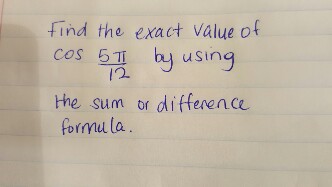 Find the exact value of
cos 5π/12 by using
the sum or difference
formula.